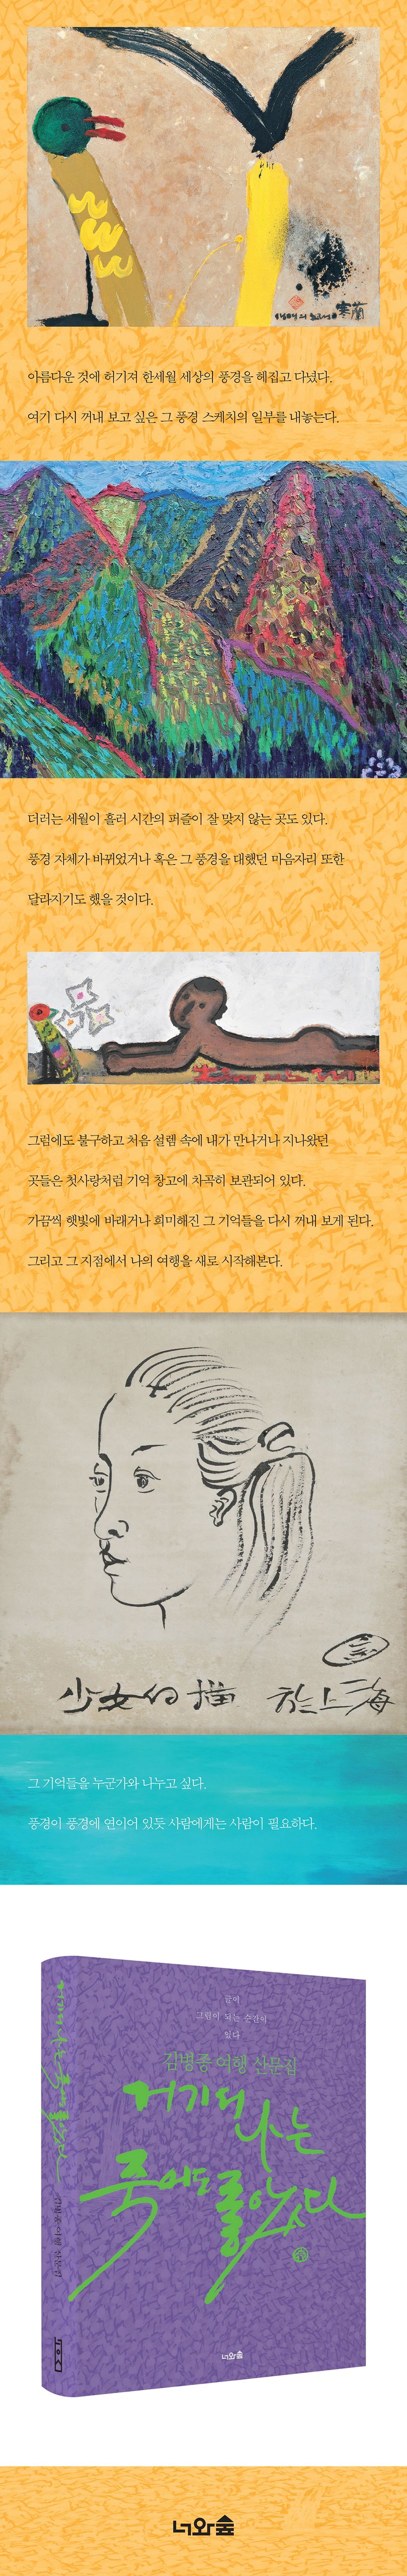 생명의 노래 寒蘭
아름다운 것에 허기져 한세월 세상의 풍경을 헤집고 다녔다.
여기 다시 꺼내 보고 싶은 그 풍경 스케치의 일부를 내놓는다.
더러는 세월이 흘러 시간의 퍼즐이 잘 맞지 않는 곳도 있다.
풍경 자체가 바뀌었거나 혹은 그 풍경을 대했던 마음자리 또한
달라지기도 했을 것이다.
그럼에도 불구하고 처음 설렘 속에 내가 만나거나 지나왔던
곳들은 첫사랑처럼 기억 창고에 차곡히 보관되어 있다.
가끔씩 햇빛에 바래거나 희미해진 그 기억들을 다시 꺼내 보게 된다.
그리고 그 지점에서 나의 여행을 새로 시작해본다.
少女幻描 於上海
그 기억들을 누군가와 나누고 싶다.
풍경이 풍경에 연이어 있듯 사람에게는 사람이 필요하다.
글이
그림이 되는 순간이
있다
김병종 여행 산문집
거기서
나는
죽어도
좋았다
너와숲
거기서 나는 죽어도 좋았다
김병종 여행 산문집
너와숲